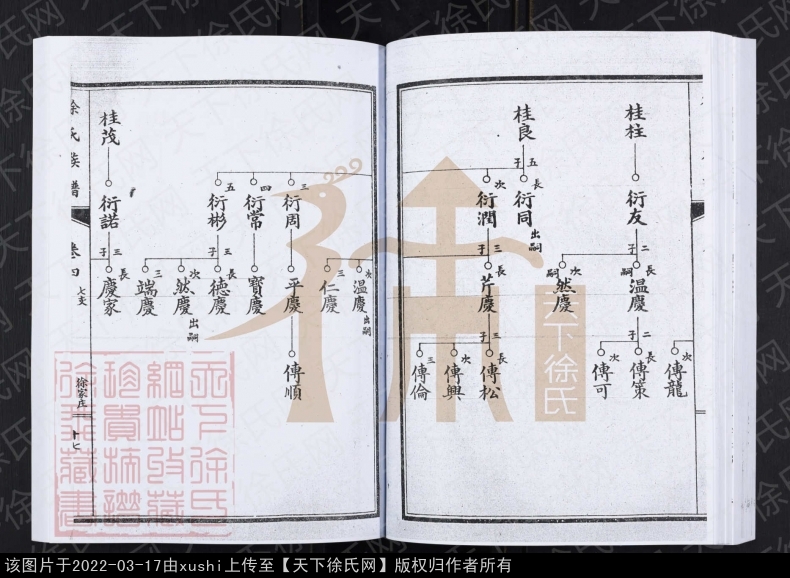 桂柱
衍友
二子
嗣
溫慶
次
然慶
嗣
二子
次
傳龍
長
傳策
次
傳可
桂良
五子
長
衍同
出嗣
次
衍潤
三子
長
芹慶
次
溫慶
出嗣
三
仁慶
三子
長
傳松
次
傳興
三
傳倫
三
衍周
平慶
傳順
四
衍常
寶慶
五
衍彬
三子
長
德慶
次
然慶
出嗣
三
端慶
桂茂
衍諾
三子
長
慶家
徐氏族譜
卷四
七支
徐家庄
十七
天下徐氏
天下徐氏网
天下徐氏
網站收藏
珍貴抽譜
徐氏藏書
该图片于2022-03-17由xushi上传至【天下徐氏网】版权归作者所有